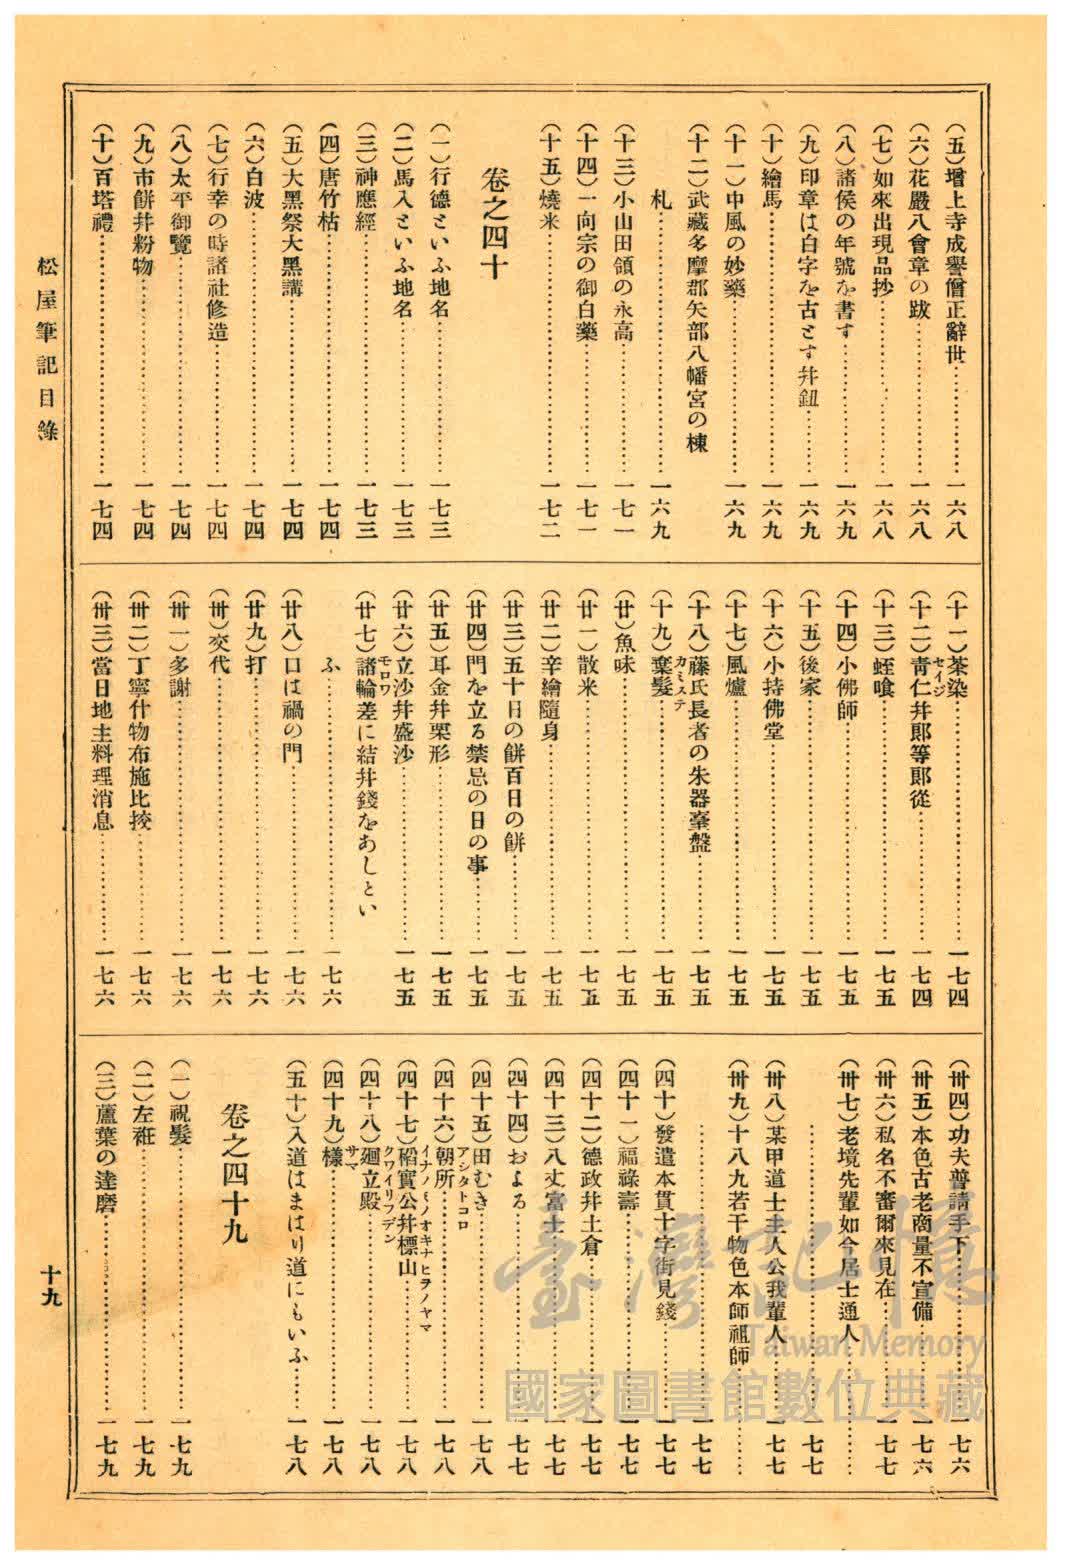 (五)增上寺成譽僧正辭世……一六八
(六)花嚴八會章の跋……一六八
(七)如來出現品抄……一六八
(八)諸侯の年號を書す……一六九
(九)印章は白字を古とす幷鈕……一六九
(十)繪馬……一六九
(十一)中風の妙藥……一六九
(十二)武藏多摩郡矢部八幡宮の棟
札……一六九
(十三)小山田領の永高……一七一
(十四)一向宗の御白藥……一七一
(十五)燒米……一七二
卷之四十
(一)行德といふ地名……一七三
(二)馬入といふ地名……一七三
(三)神應經……一七三
(四)唐竹枯……一七四
(五)大黑祭大黑講……一七四
(六)白波……一七四
(七)行幸の時諸社修造……一七四
(八)太平御覽……一七四
(九)市餠幷粉物……一七四
(十)百塔禮……一七四
(十一)茶染……一七四
(十二)靑仁幷郞等郞從……一七四
セイジ
(十三)蛭喰……一七五
(十四)小佛師……一七五
(十五)後家……一七五
(十六)小持佛堂……一七五
(十七)風爐……一七五
(十八)藤氏長者の朱器臺盤……一七五
(十九)棄髮……一七五
カミステ
(廿)魚味……一七五
(廿一)散米……一七五
(廿二)辛繪隨身……一七五
(廿三)五十日の餠百日の餠……一七五
(廿四)門を立る禁忌の日の事……一七五
(廿五)耳金幷栗形……一七五
(廿六)立沙幷盛沙……一七五
(廿七)諸輪差に結幷錢をあしとい
モロワ
ふ……一七六
(廿八)口は禍の門……一七六
(廿九)打……一七六
(卅)交代……一七六
(卅一)多謝……一七六
(卅二)丁寧什物布施比挍……一七六
(卅三)當日地主料理消息……一七六
(卅四)功夫普請手下……一七六
(卅五)本色古老商量不宣備……一七六
(卅六)私名不審爾來見在……一七七
(卅七)老境先輩如今居士通人……
……一七七
(卅八)某甲道士主人公我輩人……一七七
(卅九)十八九若干物色本師祖師……
……一七七
(四十)發遣本貫十字街見錢……一七七
(四十一)福祿壽……一七七
(四十二)德政幷土倉……一七七
(四十三)八丈富士……一七七
(四十四)およる……一七七
(四十五)田むき……一七八
(四十六)朝所……一七八
アシタトコロ
(四十七)稻實公幷標山……一七八
イナノミノオキナヒヲノヤマ
(四十八)廻立殿……一七八
クワイリフデン
(四十九)樣……一七八
サマ
(五十)入道はまはり道にもいふ……一七八
卷之四十九
(一)祝髮……一七九
(二)左袵……一七九
(三)蘆葉の達磨……一七九
松屋筆記目錄
十九
臺灣記憶
Taiwan Memory
國家圖書館數位典藏